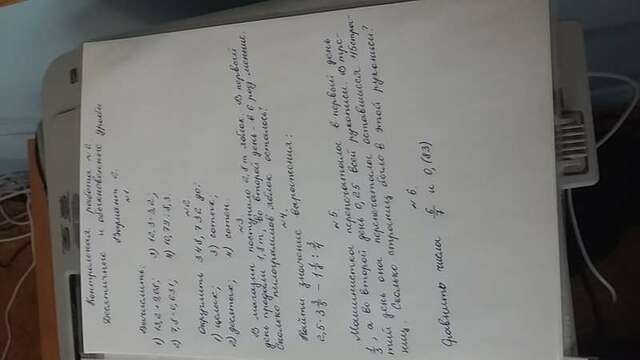 Контрольная работа №2
Десятичные и обыкновенные дроби
Вариант 2.
№1
Вычислить:
3) 12,3·3,2;
2) 7,2-5,631; 4)
№2
Округлить 348,732 до:
1) целых; 3) сотых;
2) десятых; 4) сотен.
№3
В магазин поступило 2,8 т яблок. В первый
день продали 1,8 т, во второй день - в 6 раз меньше.
Сколько килограммов яблок осталось?
№4
Найти значение выражения:
№5
Машинистка перепечатала в первый день
, а во второй день 0,25 всей рукописи. В тре-
тий день она перепечатала оставшиеся
ниц. Сколько страниц было в этой рукописи?
№6
Сравнить числа и 0,(83)